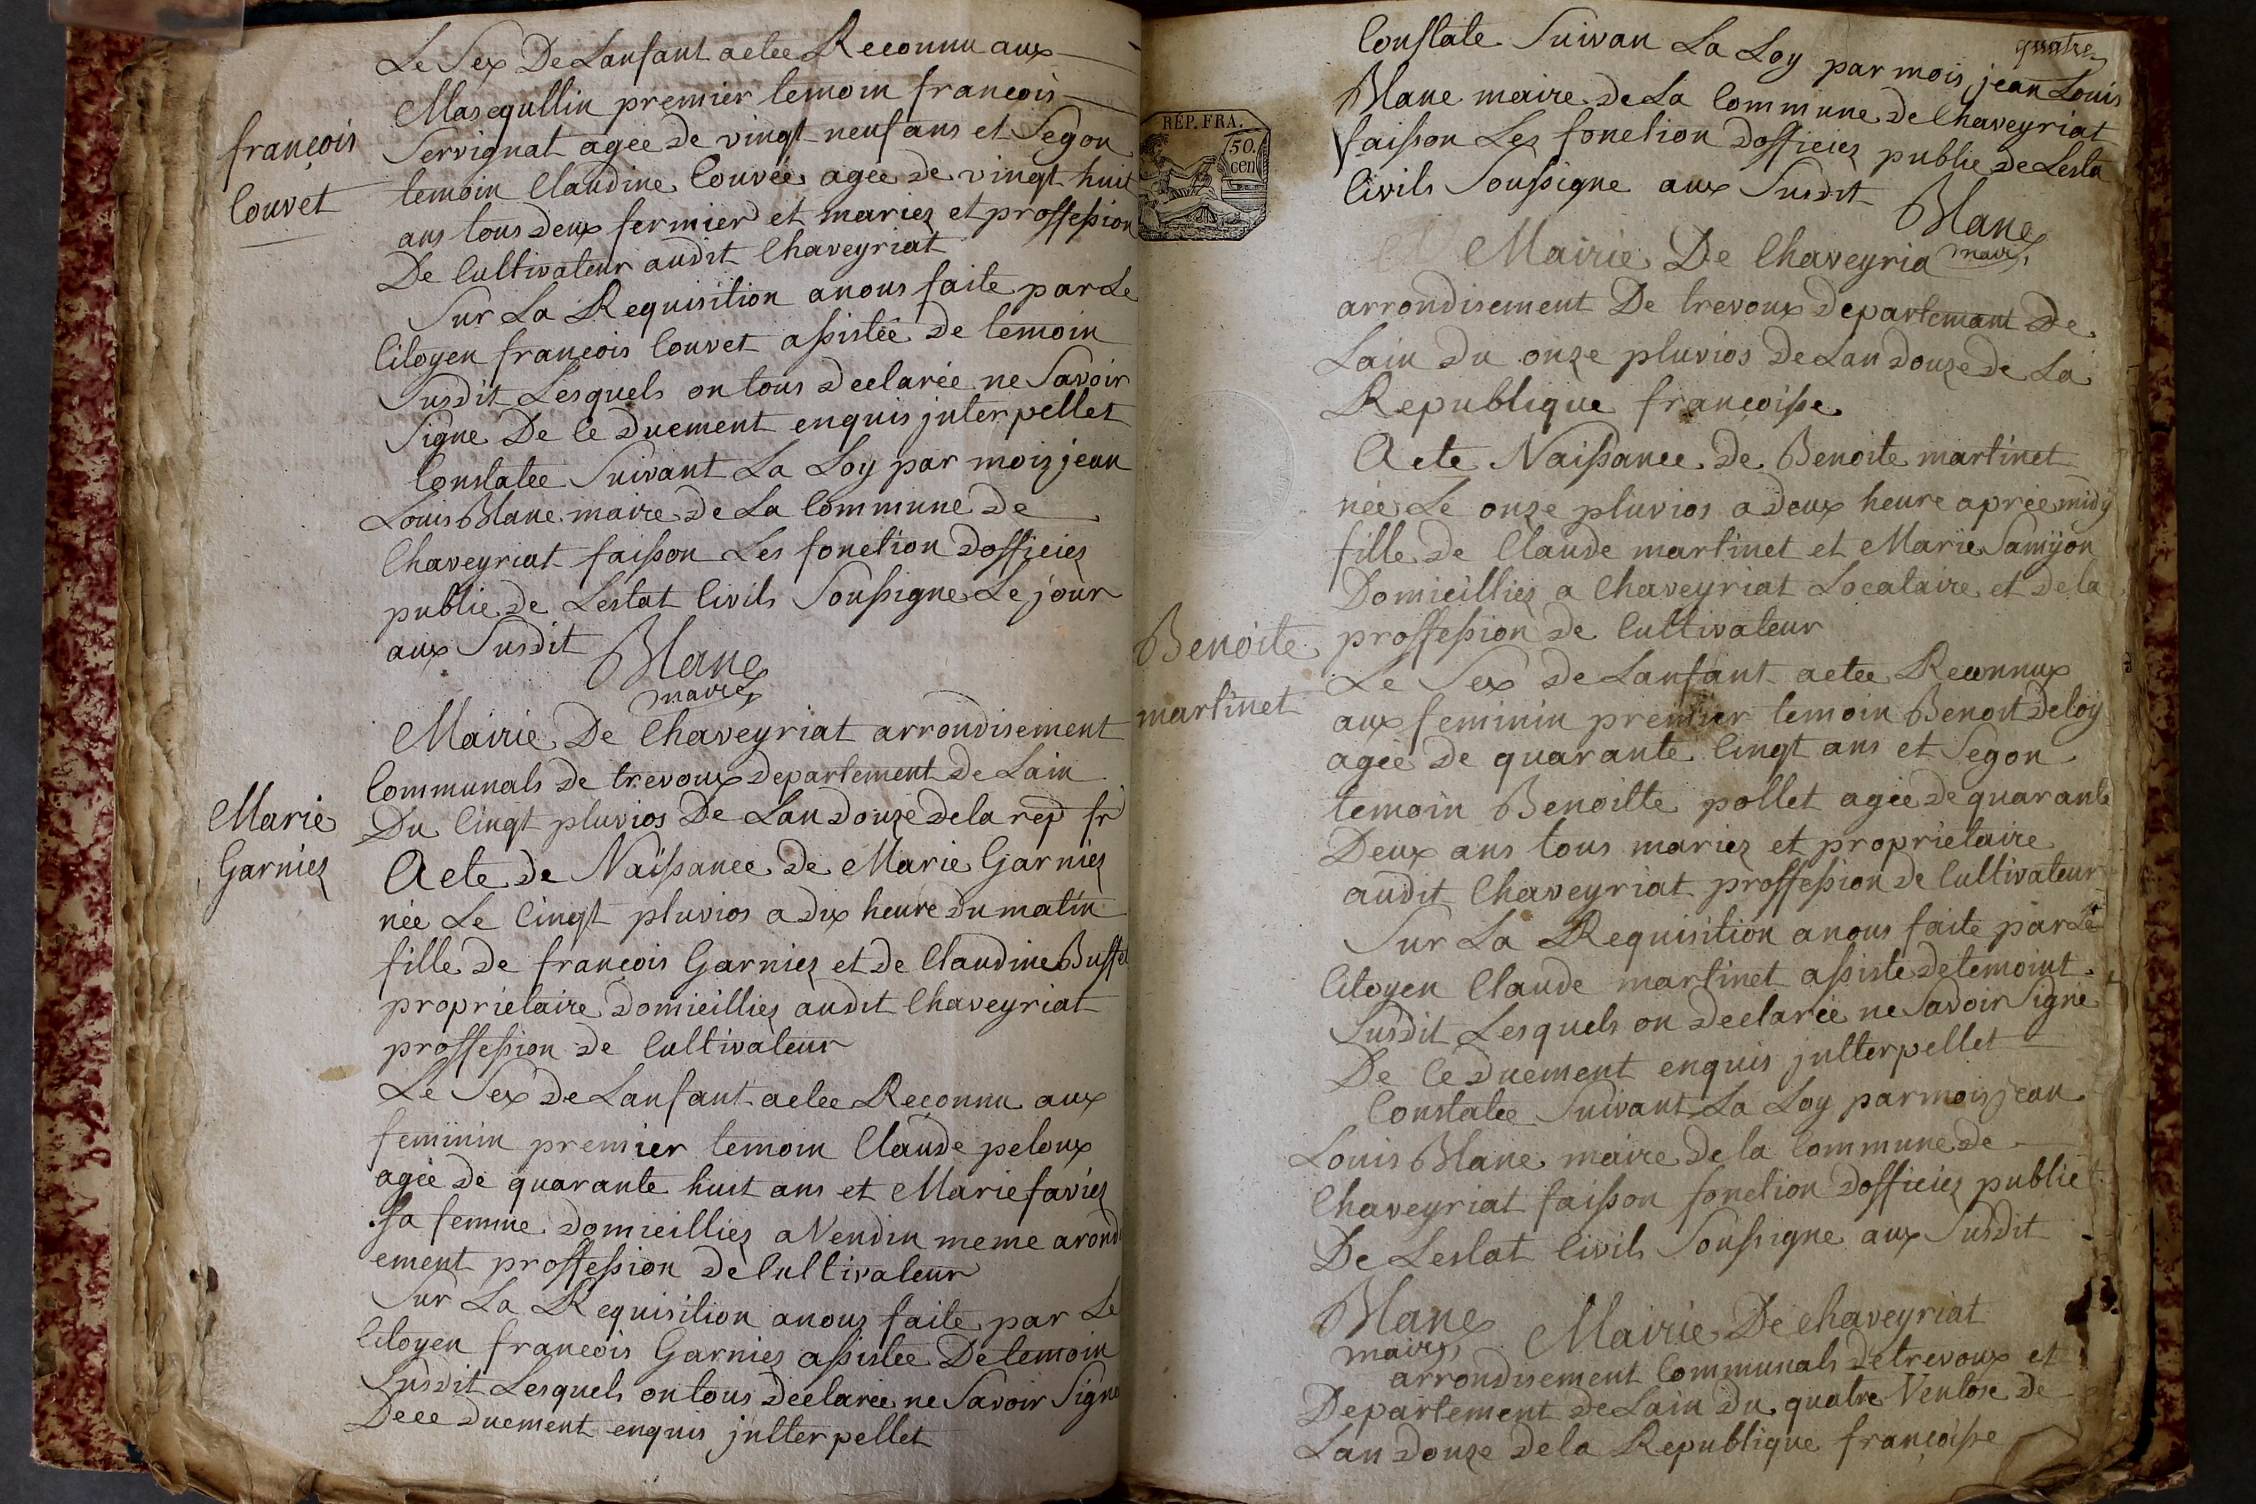 Le Sex De Lanfant aetee Reconnu aux
Masequllin premier temoin françois
françois
Servignat agée de vingt neuf ans et Segon
Couvet
temoin Claudine Couvée agée de vingt huit
ans tous deux fermier et mariez et proffession
De Cultivateur audit Chaveyriat
Sur La Requisition anous faite parle
Citoyen françois Couvet assistée de temoin
Susdit Lesquels on tous declarée ne Savoir
Signe De Ce Duement enquis julerpellet
Constatee Suivant La Loy par mois jean
Louis Blanc maire de La Commune de
Chaveyriat faisson Les fonction Dofficiez
public de Lestat Civils Soussigne Le jour
aux Susdit Blanc
maire
Mairie De Chaveyriat arrondisement
Communals de trevoux departement de Lain
Marie
Du Cinqt pluvios De Lan Douze dela rep fr
Garniez
Acte de Naissance de Marie Garniez
née Le Cinqt pluvios a dix heure du matin
fille de françois Garniez et de Claudine Buffet
proprietaire domicilliez audit Chaveyriat
proffession de Cultivateur
Le Sex De Lanfant aetee Reconnu aux
feminin premier temoin Claude peloux
agée de quarante huit ans et Marie faviez
sa femme domicilliez a Vendin meme arond
ement proffession de Cultivateur
Sur La Requisition anous faite par Le
Citoyen françois Garniez assistée De temoin
Susdit Lesquels on tous declarée ne Savoir Signe
Dece duement enquis jullerpellet
quatre
Constate Suivan La Loy par mois jean Louis
Blanc maire de La Commune de Chaveyriat
faisson Les fonction dofficiez public de Lesta
Civils Soussigne aux Susdit Blanc
maire
REP. FRA.
50.
cen
Mairie De Chaveyria
arrondisement De trevoux departemant De
Lain du onze pluvios de Lan douze de La
Republique françoisse
Acte Naissance de Benoite martinet
née Le onze pluvios a deux heure aprée midy
fille de Claude martinet et Marie Samyon
Domicilliez a Chaveyriat Locataire et dela
Benoite
proffession de Cultivateur
martinet
Le Sex de Lanfant aetee Reconnux
aux feminin premier temoin Benoit Deloy
agée de quarante Cinqt ans et Segon
temoin Benoitte pollet agée de quarante
Deux ans tous mariez et proprietaire
audit Chaveyriat proffession de Cultivateur
Sur La Requisition anous faite parle
Citoyen Claude martinet assiste detemoint
Susdit Lesquels on declarée ne Savoir Signe
De Ce duement enquis jullerpellet
Constatee Suivant La Loy par mois jean
Louis Blanc maire de la Commune de
Chaveyriat faisson fonction dofficiez publiet
De Lestat Civils Soussigne aux Susdit
Blanc
maire
Mairie De Chaveyriat
arrondisement Communals detrevoux et
Departement de Lain du quatre Ventose de
Lan douze dela Republique françoisse